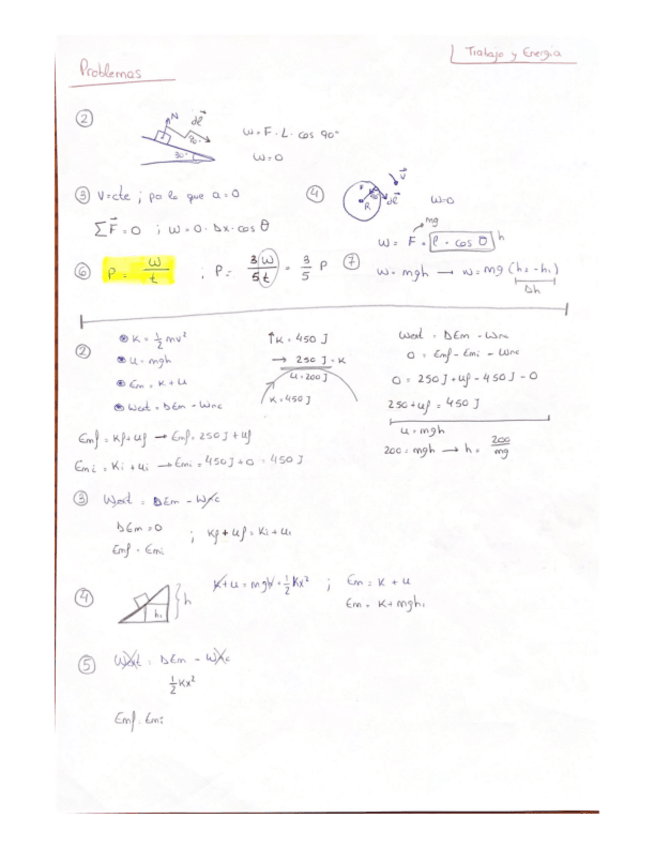 Trabajo y Energía
Problemas
②
N dl
90°
30°
W = F · L · cos 90°
W = 0
③ V = cte ; por lo que a = 0
ΣF = 0 ; W = 0 · Δx · cos θ
④
R
dl
v
W = 0
mg
W = F · l · cos θ h
⑥ P = W/t ; P = 3W/5t = 3/5 P
⑦ W = mgh → W = mg (h₂ - h₁)
Δh
②
K = ½ mv²
U = mgh
Em = K + U
Wext = ΔEm - Wnc
↑K = 450 J
→ 250 J = K
U = 200 J
K = 450 J
Wext = ΔEm - Wnc
0 = Emf - Emi - Wnc
0 = 250 J + Uf - 450 J - 0
250 + Uf = 450 J
U = mgh
200 = mgh → h = 200/mg
Emf = Kf + Uf → Emf = 250 J + Uf
Emi = Ki + Ui → Emi = 450 J + 0 = 450 J
③ Wext = ΔEm - Wnc
ΔEm = 0
Emf = Emi
; Kf + Uf = Ki + Ui
④
h
h₁
K + U = mgh + ½ Kx² ; Em = K + U
Em = K + mgh₁
⑤ Wext = ΔEm - Wnc
½ Kx²
Emf = Emi